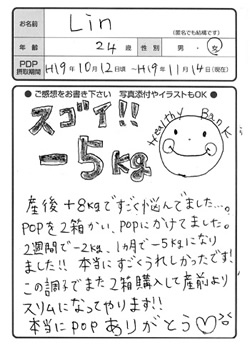 お名前 Lin (匿名でも結構です)
年齢 24歳 性別 男・女
PDP摂取期間 H19年10月12日頃 ~H19年11月14日(現在)
●ご感想をお書き下さい 写真添付やイラストもOK●
スゴイ!!
-5kg
Healthy Bank
産後+8kgですごく悩んでました…。
POPを2箱かい、POPにかけてました。
2週間で-2kg、1ヵ月で-5kgになり
ました!! 本当にすごくうれしかったです!
この調子でまた2箱購入して産前より
スリムになってやります!!
本当にPOPありがとう♡